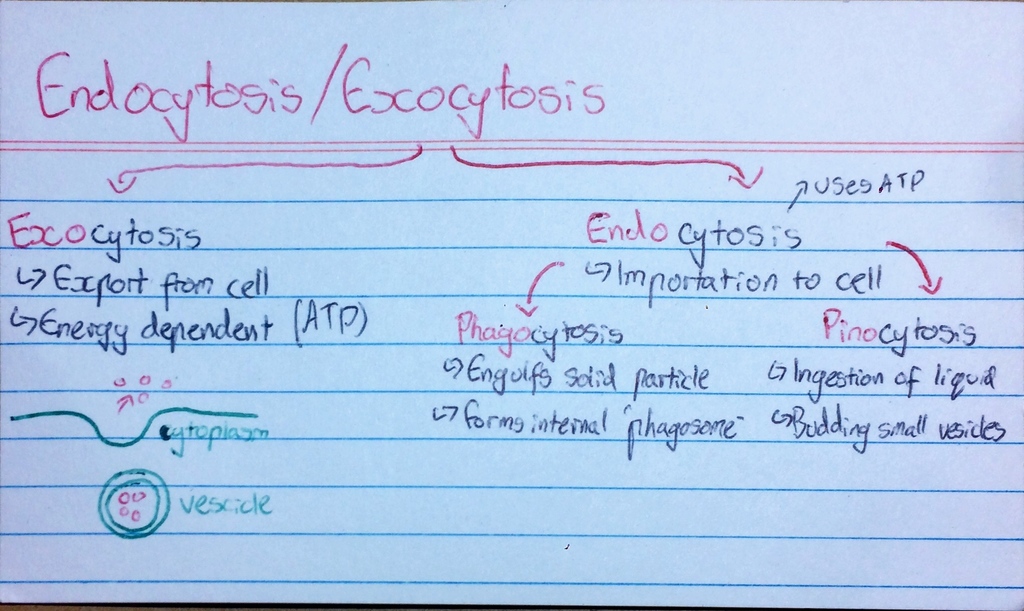 Endocytosis/Excocytosis
↗ uses ATP
Excocytosis
↳ Export from cell
↳ Energy dependent (ATP)
cytoplasm
vescicle
Endocytosis
↳ Importation to cell
Phagocytosis
↳ Engulfs solid particle
↳ forms internal "phagosome"
Pinocytosis
↳ Ingestion of liquid
↳ Budding small vesicles